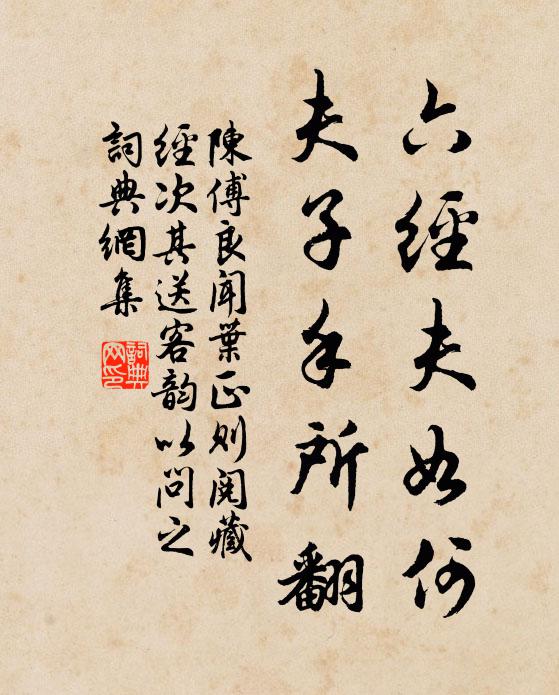 六經夫如何
夫子手所翻
陳傅良聞葉正則閱藏
經次其送客韵以問之
詞典網集
詞典網印